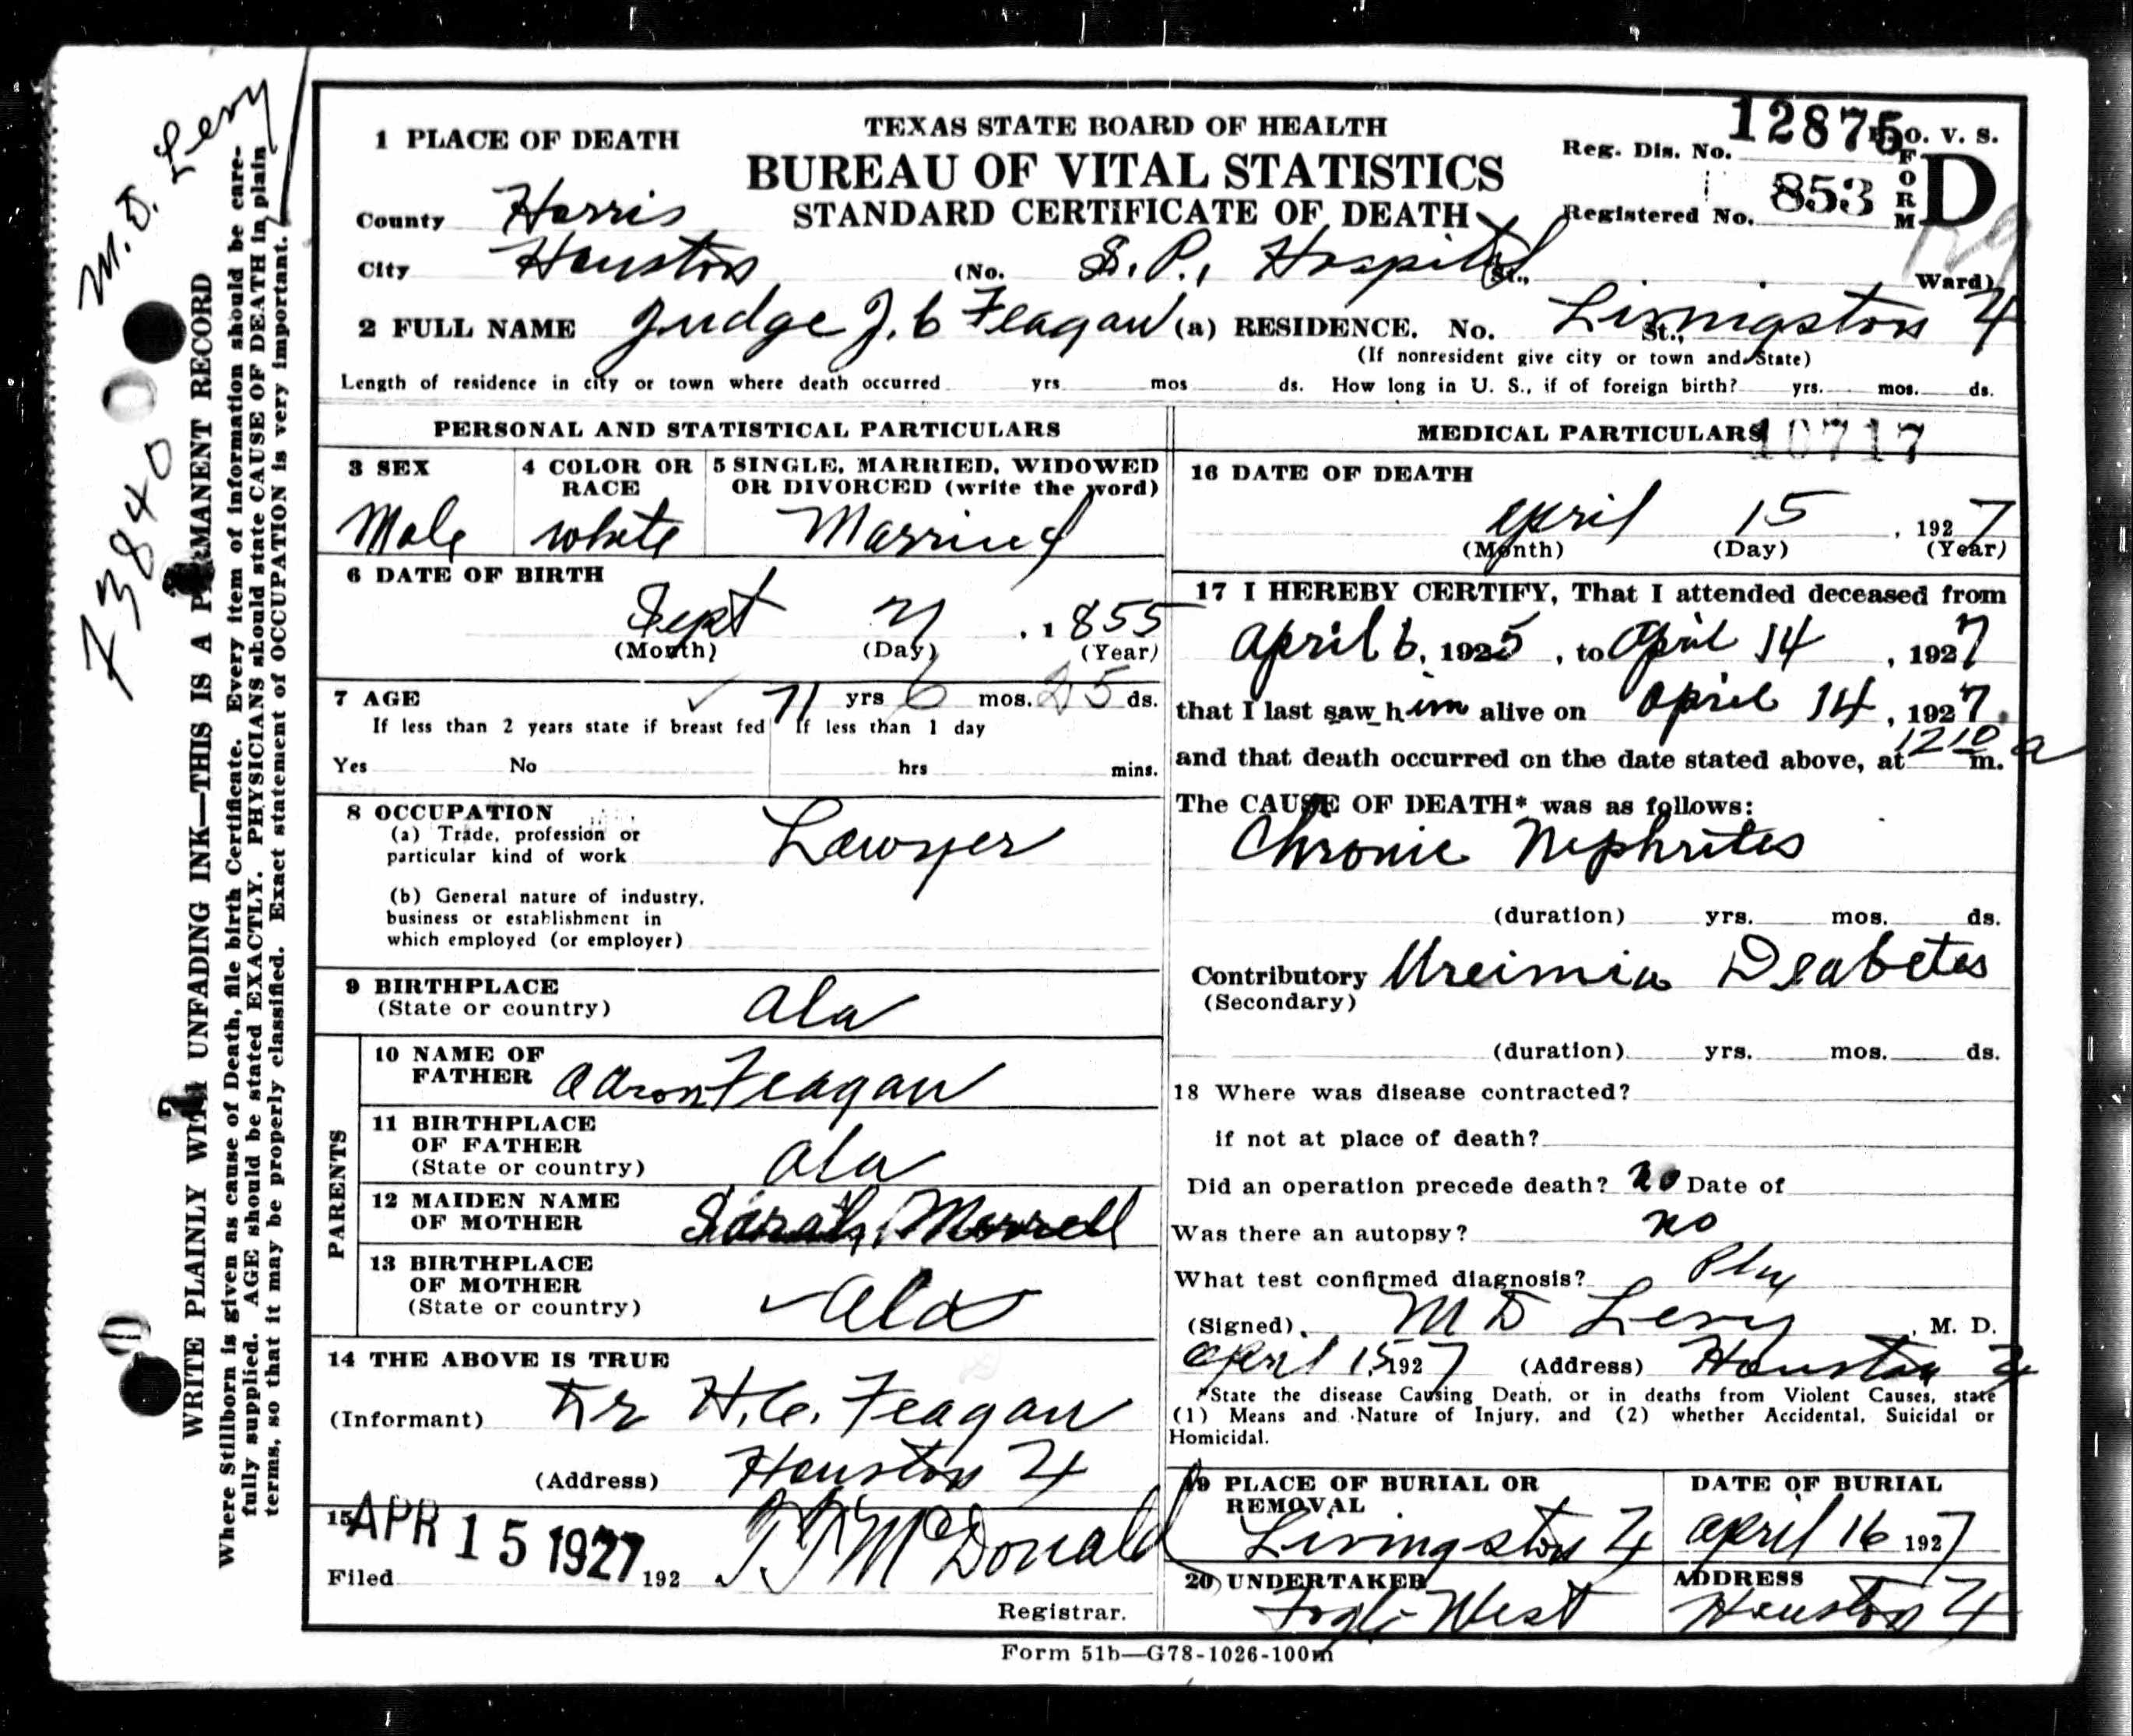 M. D. Levy
73840
WRITE PLAINLY WITH UNFADING INK—THIS IS A PERMANENT RECORD
Where Stillborn is given as cause of Death, file birth Certificate. Every item of information should be care-
fully supplied. AGE should be stated EXACTLY. PHYSICIANS should state CAUSE OF DEATH in plain
terms, so that it may be properly classified. Exact statement of OCCUPATION is very important.
TEXAS STATE BOARD OF HEALTH
BUREAU OF VITAL STATISTICS
STANDARD CERTIFICATE OF DEATH
Reg. Dis. No. 12875 O. V. S.
Registered No. 853 FORM D
1 PLACE OF DEATH
County Harris
City Houston (No. S. P., Hospital St., Ward)
2 FULL NAME Judge J. C Feagan (a) RESIDENCE. No. Livingston St.,
(If nonresident give city or town and State)
Length of residence in city or town where death occurred yrs mos ds. How long in U. S., if of foreign birth? yrs. mos. ds.
PERSONAL AND STATISTICAL PARTICULARS
3 SEX 4 COLOR OR RACE 5 SINGLE, MARRIED, WIDOWED OR DIVORCED (write the word)
Male white Married
6 DATE OF BIRTH
Sept 21, 1855
(Month) (Day) (Year)
7 AGE 71 yrs 6 mos. 25 ds.
If less than 2 years state if breast fed If less than 1 day
Yes No hrs mins.
8 OCCUPATION
(a) Trade, profession or
particular kind of work Lawyer
(b) General nature of industry,
business or establishment in
which employed (or employer)
9 BIRTHPLACE
(State or country) Ala
PARENTS
10 NAME OF
FATHER Aaron Feagan
11 BIRTHPLACE
OF FATHER
(State or country) Ala
12 MAIDEN NAME
OF MOTHER Sarah Morrell
13 BIRTHPLACE
OF MOTHER
(State or country) Ala
14 THE ABOVE IS TRUE
(Informant) Dr H. C. Feagan
(Address) Houston
15 APR 15 1927
Filed 192 McDonald
Registrar.
MEDICAL PARTICULARS 10717
16 DATE OF DEATH
April 15, 1927
(Month) (Day) (Year)
17 I HEREBY CERTIFY, That I attended deceased from
April 6, 1925, to April 14, 1927
that I last saw him alive on April 14, 1927.
and that death occurred on the date stated above, at 12 10 m. a
The CAUSE OF DEATH* was as follows:
Chronic Nephrites
(duration) yrs. mos. ds.
Contributory Ureimia Deabetes
(Secondary)
(duration) yrs. mos. ds.
18 Where was disease contracted?
if not at place of death?
Did an operation precede death? no Date of
Was there an autopsy? no
What test confirmed diagnosis? Phy
(Signed). M D Levy, M. D.
April 15, 1927 (Address) Houston
*State the disease Causing Death, or in deaths from Violent Causes, state
(1) Means and Nature of Injury, and (2) whether Accidental, Suicidal or
Homicidal.
19 PLACE OF BURIAL OR
REMOVAL
Livingston
DATE OF BURIAL
April 16 1927
20 UNDERTAKER
West
ADDRESS
Houston
Form 51b—G78-1026-100m